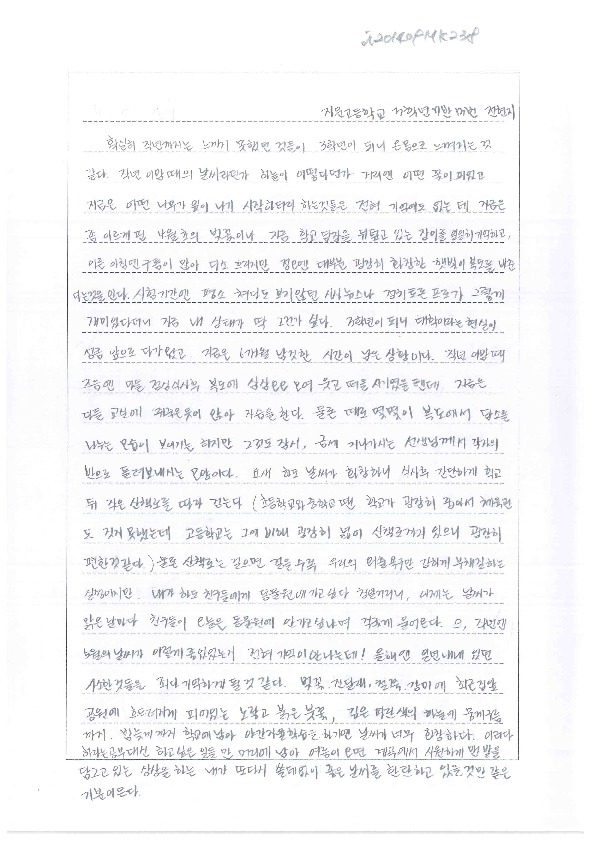 지문고등학교 3학년 7반 17번 전현지
확실히 작년까지는 느끼지 못했던 것들이 3학년이 되니 온몸으로 느껴지는 것
같다. 작년 이맘때의 날씨라던가 하늘이 어떻다던가 거리엔 어떤 꽃이 피었고
지금은 어떤 나무가 잎이 나기 시작하더라 하는것들은 전혀 기억에도 없는데, 지금은
좀 이르게 핀 4월초의 벚꽃이나 지금 학교 담장을 뒤덮고 있는 장미를 기억하고,
이른 아침엔 구름이 많아 다소 흐리지만 점오엔 대부분 굉장히 화창한 햇빛이 복도를 내쬔
다는것을 안다. 시험기간엔 평소 쳐다도 보지않던 시방뉴스나 정치토론 프로가 그렇게
재미있다더니 지금 내 상태가 딱 그런가 싶다. 3학년이 되니 대학이라는 현실이
성큼 앞으로 다가왔고 지금은 6개월 남짓한 시간이 남은 상황이다. 작년 이맘때
즈음엔 다들 점심식사후 복도에 삼삼오오 모여 웃고 떠들 시기였을텐데, 지금은
다들 교실에 앉아 자습을 한다. 물론 때로 몇몇이 복도에서 담소를
나누는 모습이 보여지는 하지만 그것도 잠시, 금세 지나가시는 선생님께서 각자의
반으로 돌려보내시는 모양이다. 요새 하도 날씨가 화창하니 식사후 간단하게 학교
뒤 작은 산책로를 따라 걷는다 (초등학교와 중학교 땐 학교가 굉장히 좁아서 체육관
도 짓지 못했는데 고등학교는 그에 비해 굉장히 넓어 산책로까지 있으니 굉장히
편한것같다.) 물론 산책로는 걸으면 걸을수록 우리의 외출욕구만 강하게 부해질하는
실정이지만. 내가 하도 친구들에게 동물원에 가고싶다 정얼거리니, 이제는 날씨가
맑은 날마다 친구들이 오늘은 동물원에 안가고싶냐며 먼저 물어온다. 으, 작년엔
5월의 날씨가 이렇게 좋았었는지 전혀 기억이 안나는데! 올해엔 일년내내 있던
사소한것들을 죄다 기억하게 될 것 같다. 벚꽃, 진달래, 철쭉, 장미에 최근
공원에 흐드러지게 피어있는 노랗고 붉은 붓꽃, 깊은 파란색의 하늘에 뭉게구름
까지. 밤늦게까지 학교에 남아 야간자율학습을 하기엔 날씨가 너무 화창하다. 이러다
하라는 공부대신 하고싶은 일들만 머리에 남아 여름이 오면 계곡에서 시원하게 맨발을
담그고 있는 상상을 하는 내가 또다시 쓸데없이 좋은 날씨를 한탄하고 있을것만 같은
기분이든다.